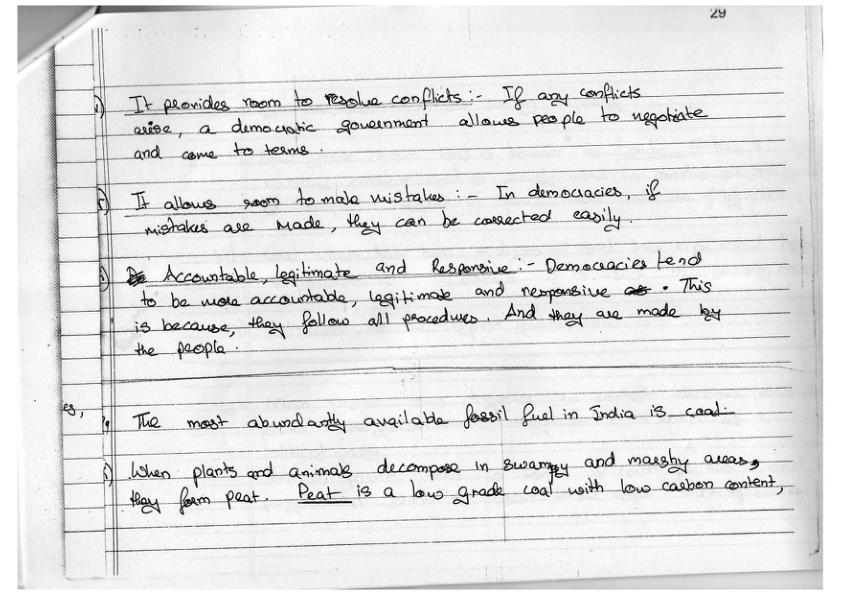 29
It provides room to resolve conflicts :- If any conflicts
arise, a democratic government allows people to negotiate
and come to terms.
It allows room to make mistakes :- In democracies, if
mistakes are made, they can be corrected easily.
Accountable, legitimate and Responsive :- Democracies tend
to be more accountable, legitimate and responsive . This
is because, they follow all procedures. And they are made by
the people.
The most abundantly available fossil fuel in India is coal.
i) When plants and animals decompose in swampy and marshy areas,
they form peat. Peat is a low grade coal with low carbon content,